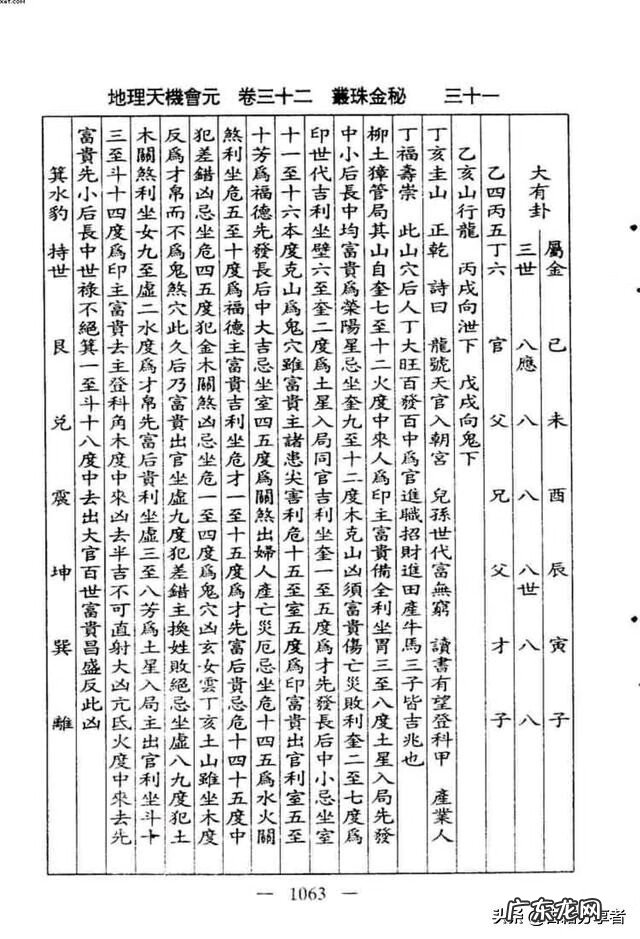 xet.com
地理天機會元　卷三十二　叢珠金秘　三十一
大有卦　屬金　巳　未　酉　辰　寅　子
三世　八應　八　八　八世　八　八
乙四丙五丁六　官　父　兄　父　才　子
乙亥山行龍　丙戌向泄下　戊戌向鬼下
丁亥圭山　正乾　詩曰　龍號天官入朝宮　兒孫世代富無窮　讀書有望登科甲　產業人
丁福壽崇　此山穴后人丁大旺百發百中為官進職招財進田產牛馬三子皆吉兆也
柳土獐管局其山自奎七至十二火度中來人為印主富貴備全利坐胃三至八度土星入局先發
中小后長中均富貴為榮陽星忌坐奎九至十二度木克山凶須富貴傷亡災敗利奎二至七度為
印世代吉利坐壁六至奎二度為土星入局同官吉利坐奎一至五度為才先發長后中小忌坐室
十一至十六本度克山為鬼穴雖富貴主諸患尖害利危十五至室五度為印富貴出官利室五至
十芳為福德先發長后中大吉忌坐室四五度為關煞出婦人產亡災厄忌坐危十四五為水火關
煞利坐危五至十度為福德主富貴吉利坐危才一至十五度為才先富后貴忌危十四十五度中
犯差錯凶忌坐危四五度犯金木關煞凶忌坐危一至四度為鬼穴凶玄女雲丁亥土山雖坐木度
反為才帛而不為鬼煞穴此久后乃富貴出官坐虛九度犯差錯主換姓敗絕忌坐虛八九度犯土
木關煞利坐女九至虛二水度為才帛先富后貴利坐虛三至八芳為土星入局主出官利坐斗十
三至斗十四度為印主富貴去主登科角木度中來凶去半吉不可直射大凶亢氐火度中來去先
富貴先小后長中世祿不絕箕一至斗十八度中去出大官百世富貴昌盛反此凶
箕水豹　持世　艮　兌　震　坤　巽　離
— 1063 —
广东龙网
头条
享者